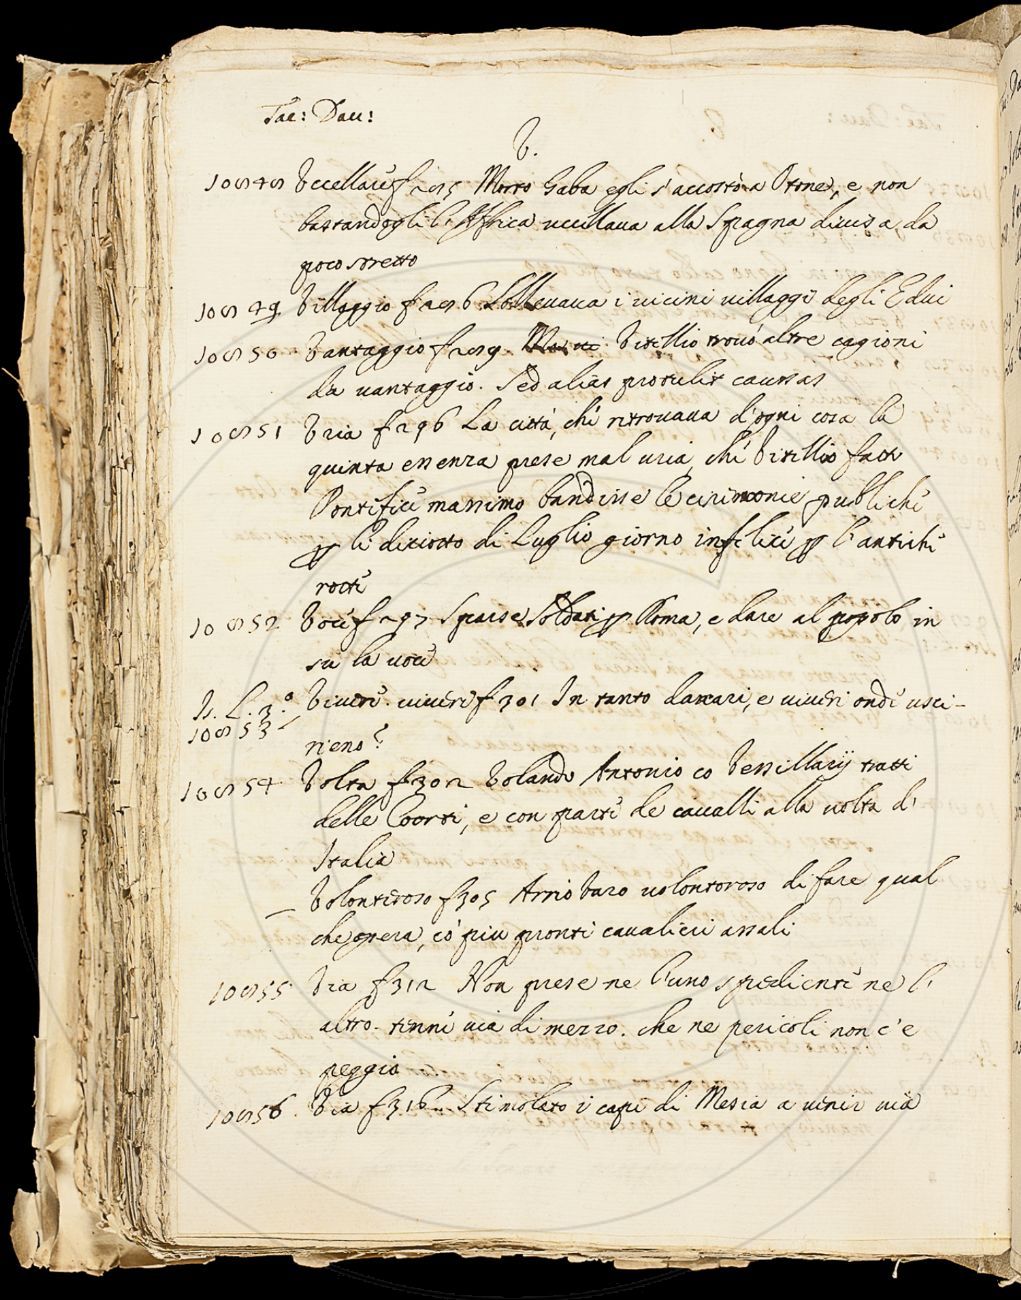 Tac: Dau:
V.
108748 Vccellare f 295 Morto Galba egli s'accostò a Otone, e non
bastandogli l'Affrica uccellaua alla Spagna diuisa da
poco stretto
108749 Villaggio f 296 Solleuaua i uicini uillaggi degli Edui
108750 Vantaggio f 299 Vitellio trouò altre cagioni
da uantaggio. Sed alias protulit caussas
108751 Vria f 296 La città, che ritrouaua d'ogni cosa la
quinta essenza prese mal uria, che Vitellio fatto
Pontefice massimo bandisse le cirimonie publiche
li diciotto di Luglio giorno infelice l'antiche
rotte
108752 Voce f 297 Sparse Soldati Roma, e dare al popolo in
su la uoce
Is. L. 3.º
108753 Viuere. uiuere f 301 In tanto danari, e uiueri onde usci-
rieno?
108754 Volta f 302 Volando Antonio co Vessillarij tratti
delle Coorti, e con parte de caualli alla uolta d'
Italia
– Volonteroso f 305 Arrio Varo uolontoroso di fare qual
che opera, co' piu pronti caualieri assalì
108755 Via f 312 Non prese ne l'uno spediente ne l'
altro. tenne uia di mezzo. che ne pericoli non c'e
peggio
108756 Via f 316 Stimolato i capi di Mesia a uenir uia